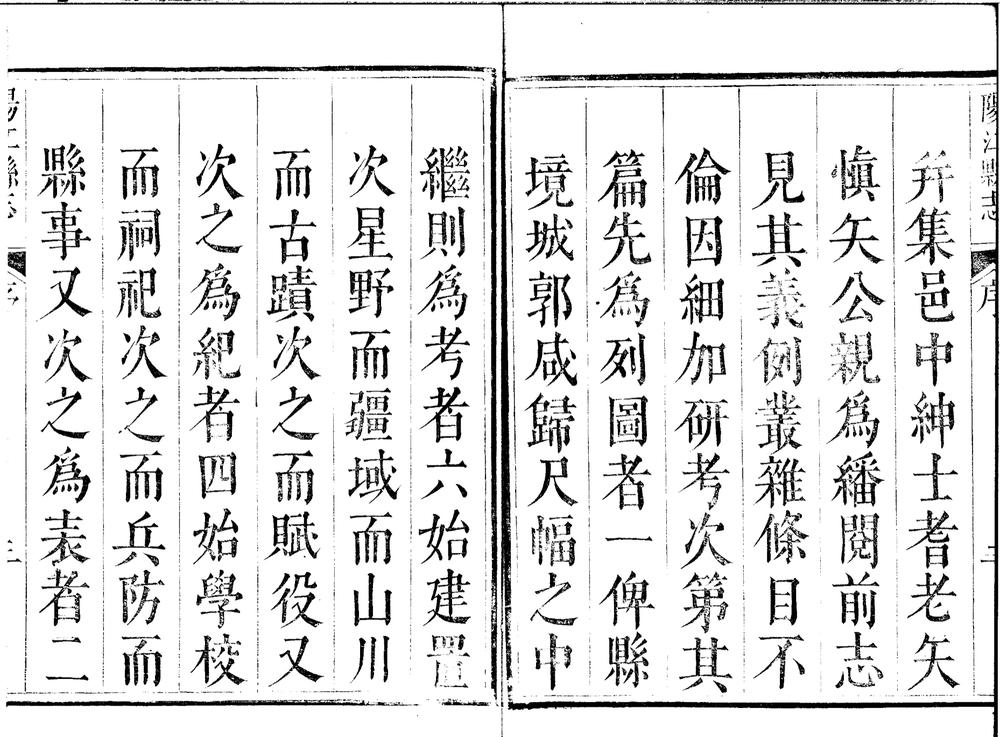 陽江縣志 序 二
并集邑中紳士耆老矢
愼矢公親爲繙閱前志
見其義例叢雜條目不
倫因細加研考次第其
篇先爲列圖者一俾縣
境城郭咸歸尺幅之中
繼則爲考者六始建置
次星野而疆域而山川
而古蹟次之而賦役又
次之爲紀者四始學校
而祠祀次之而兵防而
縣事又次之爲表者二
陽江縣志 序 三